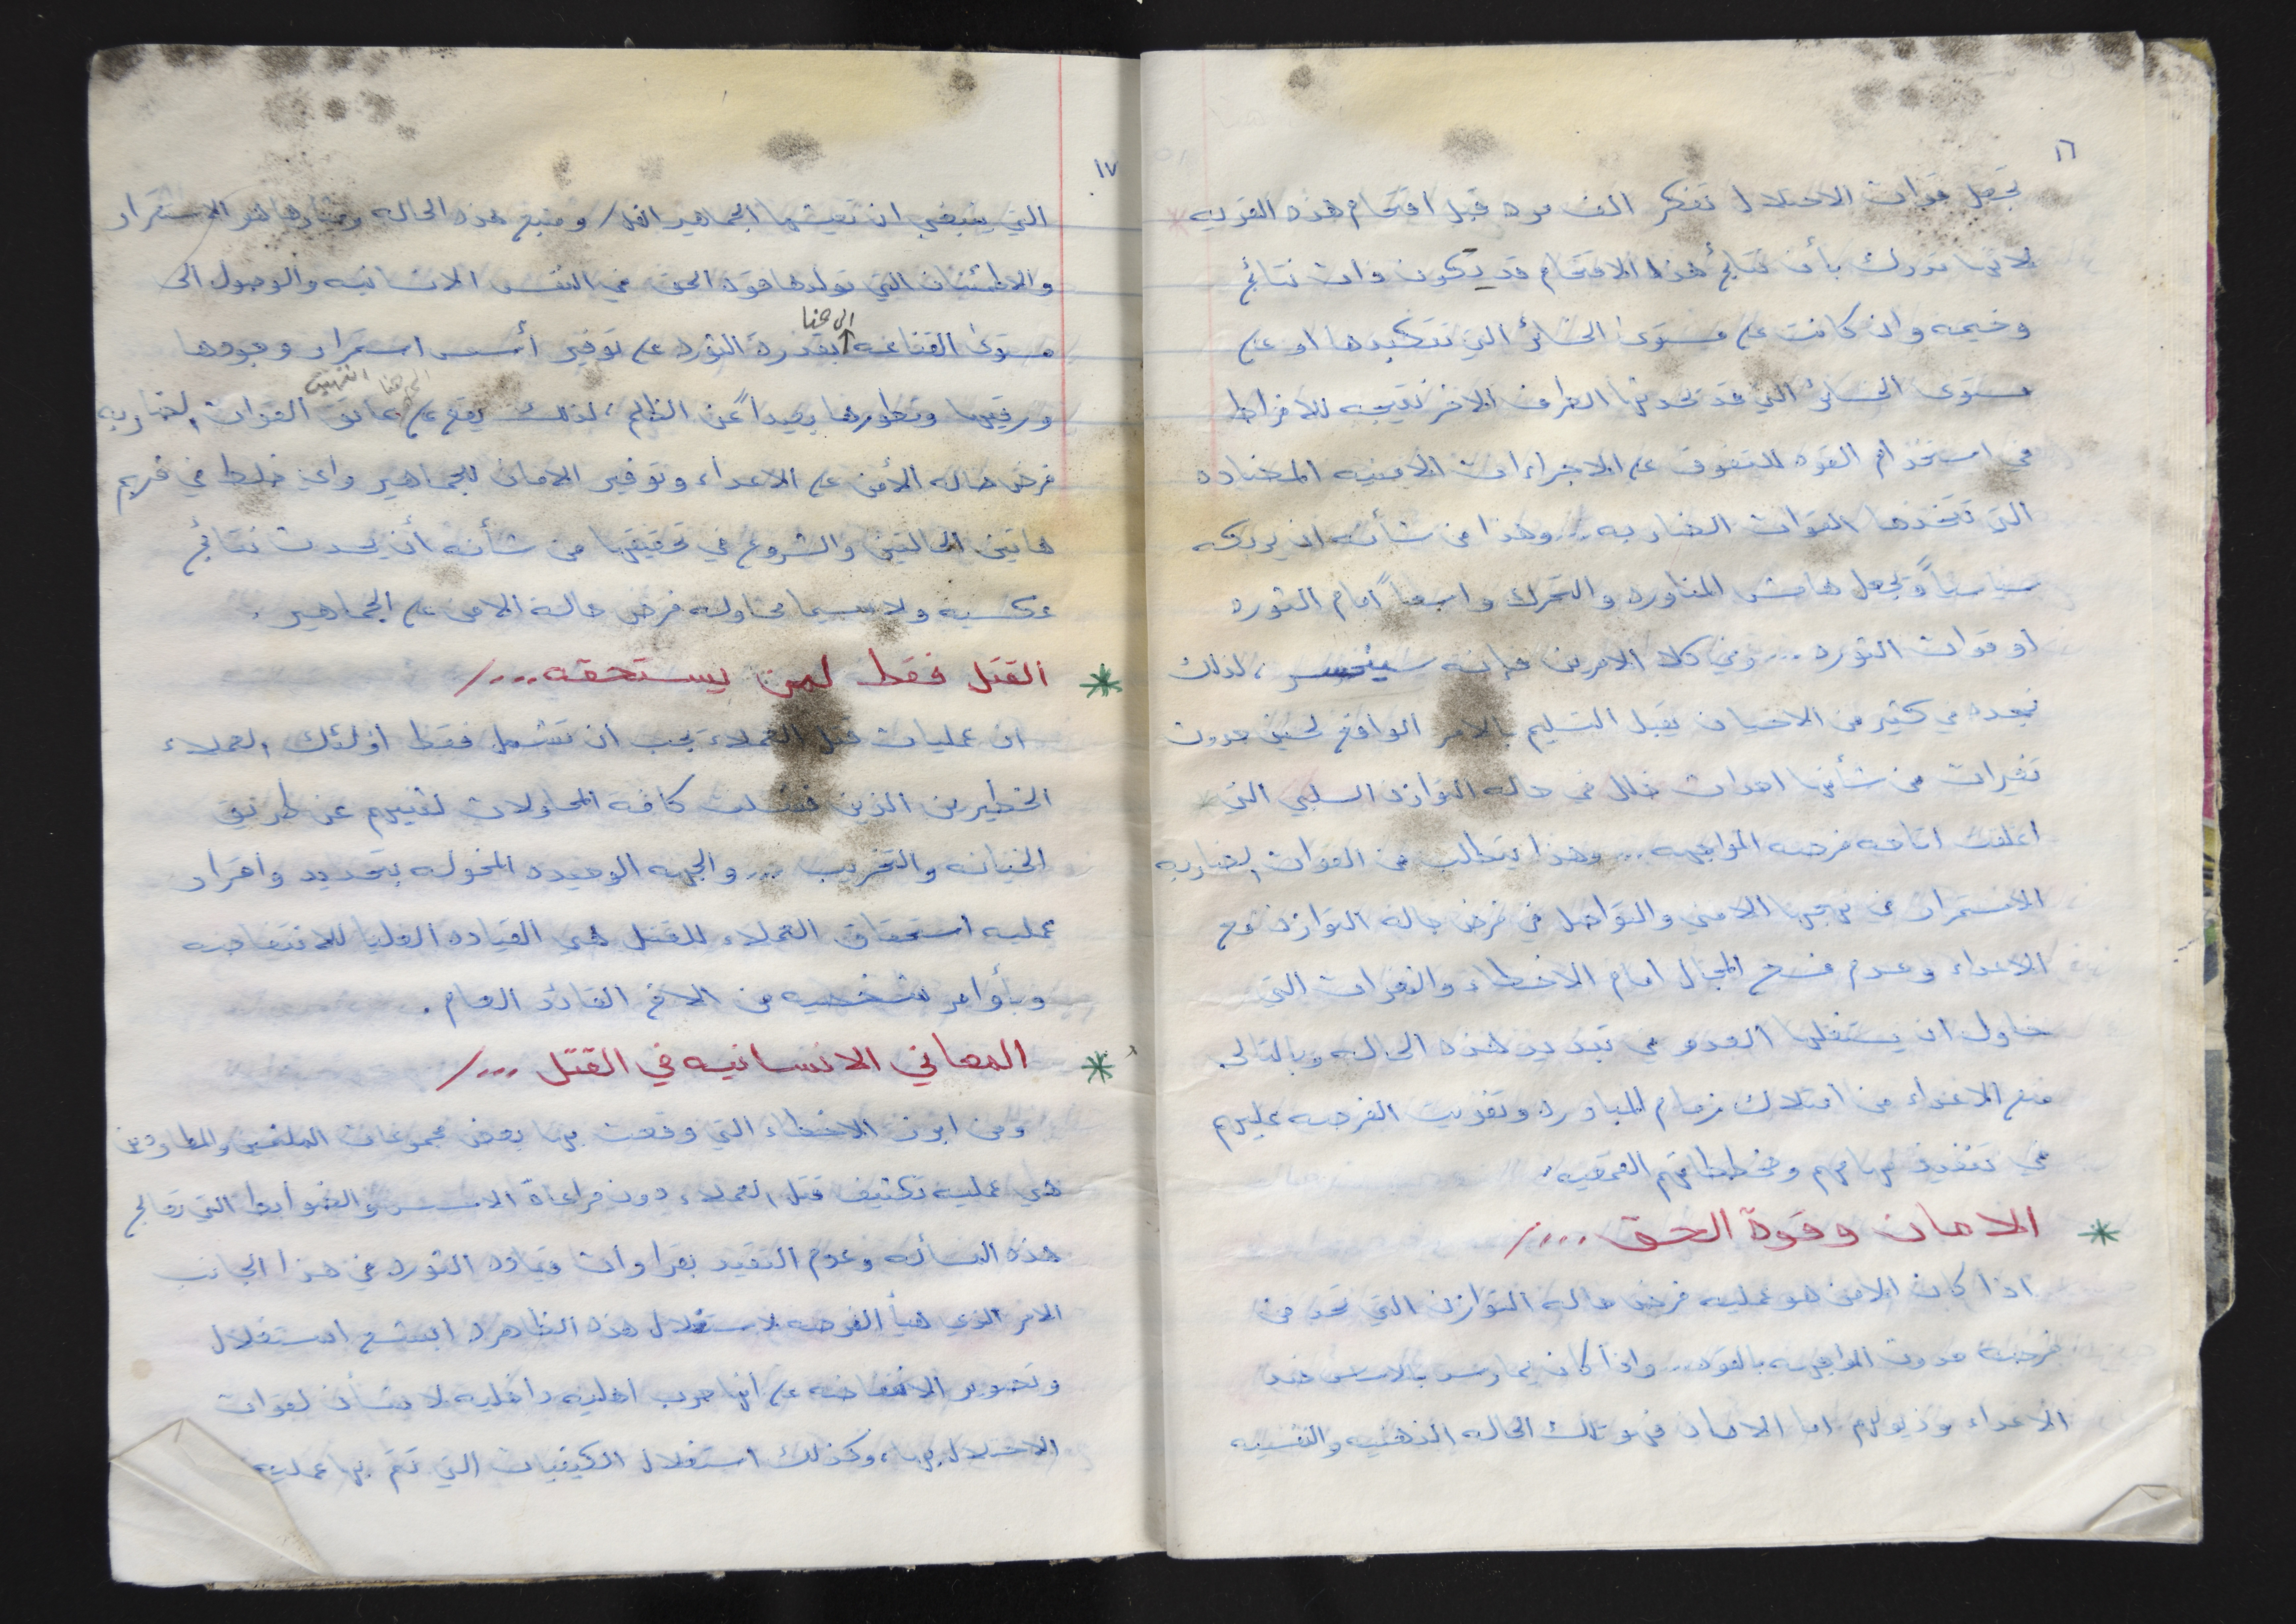 ١٦
تجعل قوات الاحتلال تفكر الف مره قبل اقتحام هذه القريه
لانها تدرك بأن نتائج هذا الاقتحام قد يكون ذات نتائج
وخيمه وان كانت على مستوى الخسائر التي تتكبدها او على
مستوى الخسائر التي قد تحدثها الطرف الاخر نتيجه للافراط
في استخدام القوه للتفوق على الاجراءات الامنيه المضاده
التي تتخذها القوات الضاربه ... وهذا من شأنه ان يربكه
سياسياً ويجعل هامش المناوره والتحرك واسعاً امام الثوره
او قوات الثوره ... وفي كلا الامرين فإنه سيخسر ، لذلك
نجده في كثير من الاحيان يقبل التسليم بالامر الواقع لحين حدوث
ثغرات من شأنها احداث خلل في حاله التوازن السلبي التي
اغلقت اتاحه فرصه المواجهه ... وهذا يتطلب من القوات الضاربه
الاستمرار في نهجها الامني والتواصل في فرض حاله التوازن مع
الاعداء وعدم فسح المجال امام الاخطاء والثغرات التي
حاول ان يستغلها العدو في تبديد هذه الحاله وبالتالي
منع الاعداء من امتلاك زمام المبادره وتفويت الفرصه عليهم
في تنفيذ مهامهم ومخططاتهم القمعيه .
* الامان وقوة الحق .../
اذا كان الامن هو عمليه فرض حاله التوازن التي تحد من
فرصة حدوث المواجهه بالقوه .. واذا كان يمارس بالاساس ضد
الاعداء وذيولهم اما الامان فهو تلك الحاله الذهنيه والنفسيه
١٧
التي ينبغي ان تعيشها الجماهير ومنبع هذه الحاله هو الاستقرار
والاطمئنان التي تولدها قوة الحق في النفس الانسانيه والوصول الى
الى هنا
مستوى القناعه بقدرة الثوره على توفير أسس استمرار وجودها
ورقيها وتطورها بعيداً عن الظلم ، لذلك يقع على عاتق القوات الضاربه
فرض حاله الأمن على الاعداء وتوفير الامان للجماهير واي خلط في فهم
هاتين الحالتين والشروع في تحقيقها من شأنه أن يحدث نتائج
عكسيه ولا سيما محاوله فرض حالة الامن على الجماهير .
* القتل فقط لمن يستحقه .../
ان عمليات قتل العملاء يجب ان تشمل فقط اولئك العملاء
الخطيرين الذين فشلت كافة المحاولات لثنيهم عن طريق
الخيانه والتخريب ... والجهه الوحيده المخوله بتحديد واقرار
عمليه استحقاق العملاء للقتل هي القياده العليا للانتفاضه
وبأوامر شخصيه من الاخ القائد العام .
* المعاني الانسانيه في القتل .../
ومن ابرز الاخطاء التي وقعت بها بعض مجموعات الملثمين والمطاردين
هي عمليه تكثيف قتل العملاء دون مراعاة الاسس والضوابط التي تعالج
هذه المسأله وعدم التقيد بقرارات قياده الثوره في هذا الجانب
الامر الذي هيأ الفرصه لاستغلال هذه الظاهره ابشع استغلال
وتصوير الانتفاضه على أنها حرب اهليه داخليه لا شأن لقوات
الاحتلال بها ، وكذلك استغلال الكيفيات التي تتم بها عمليه